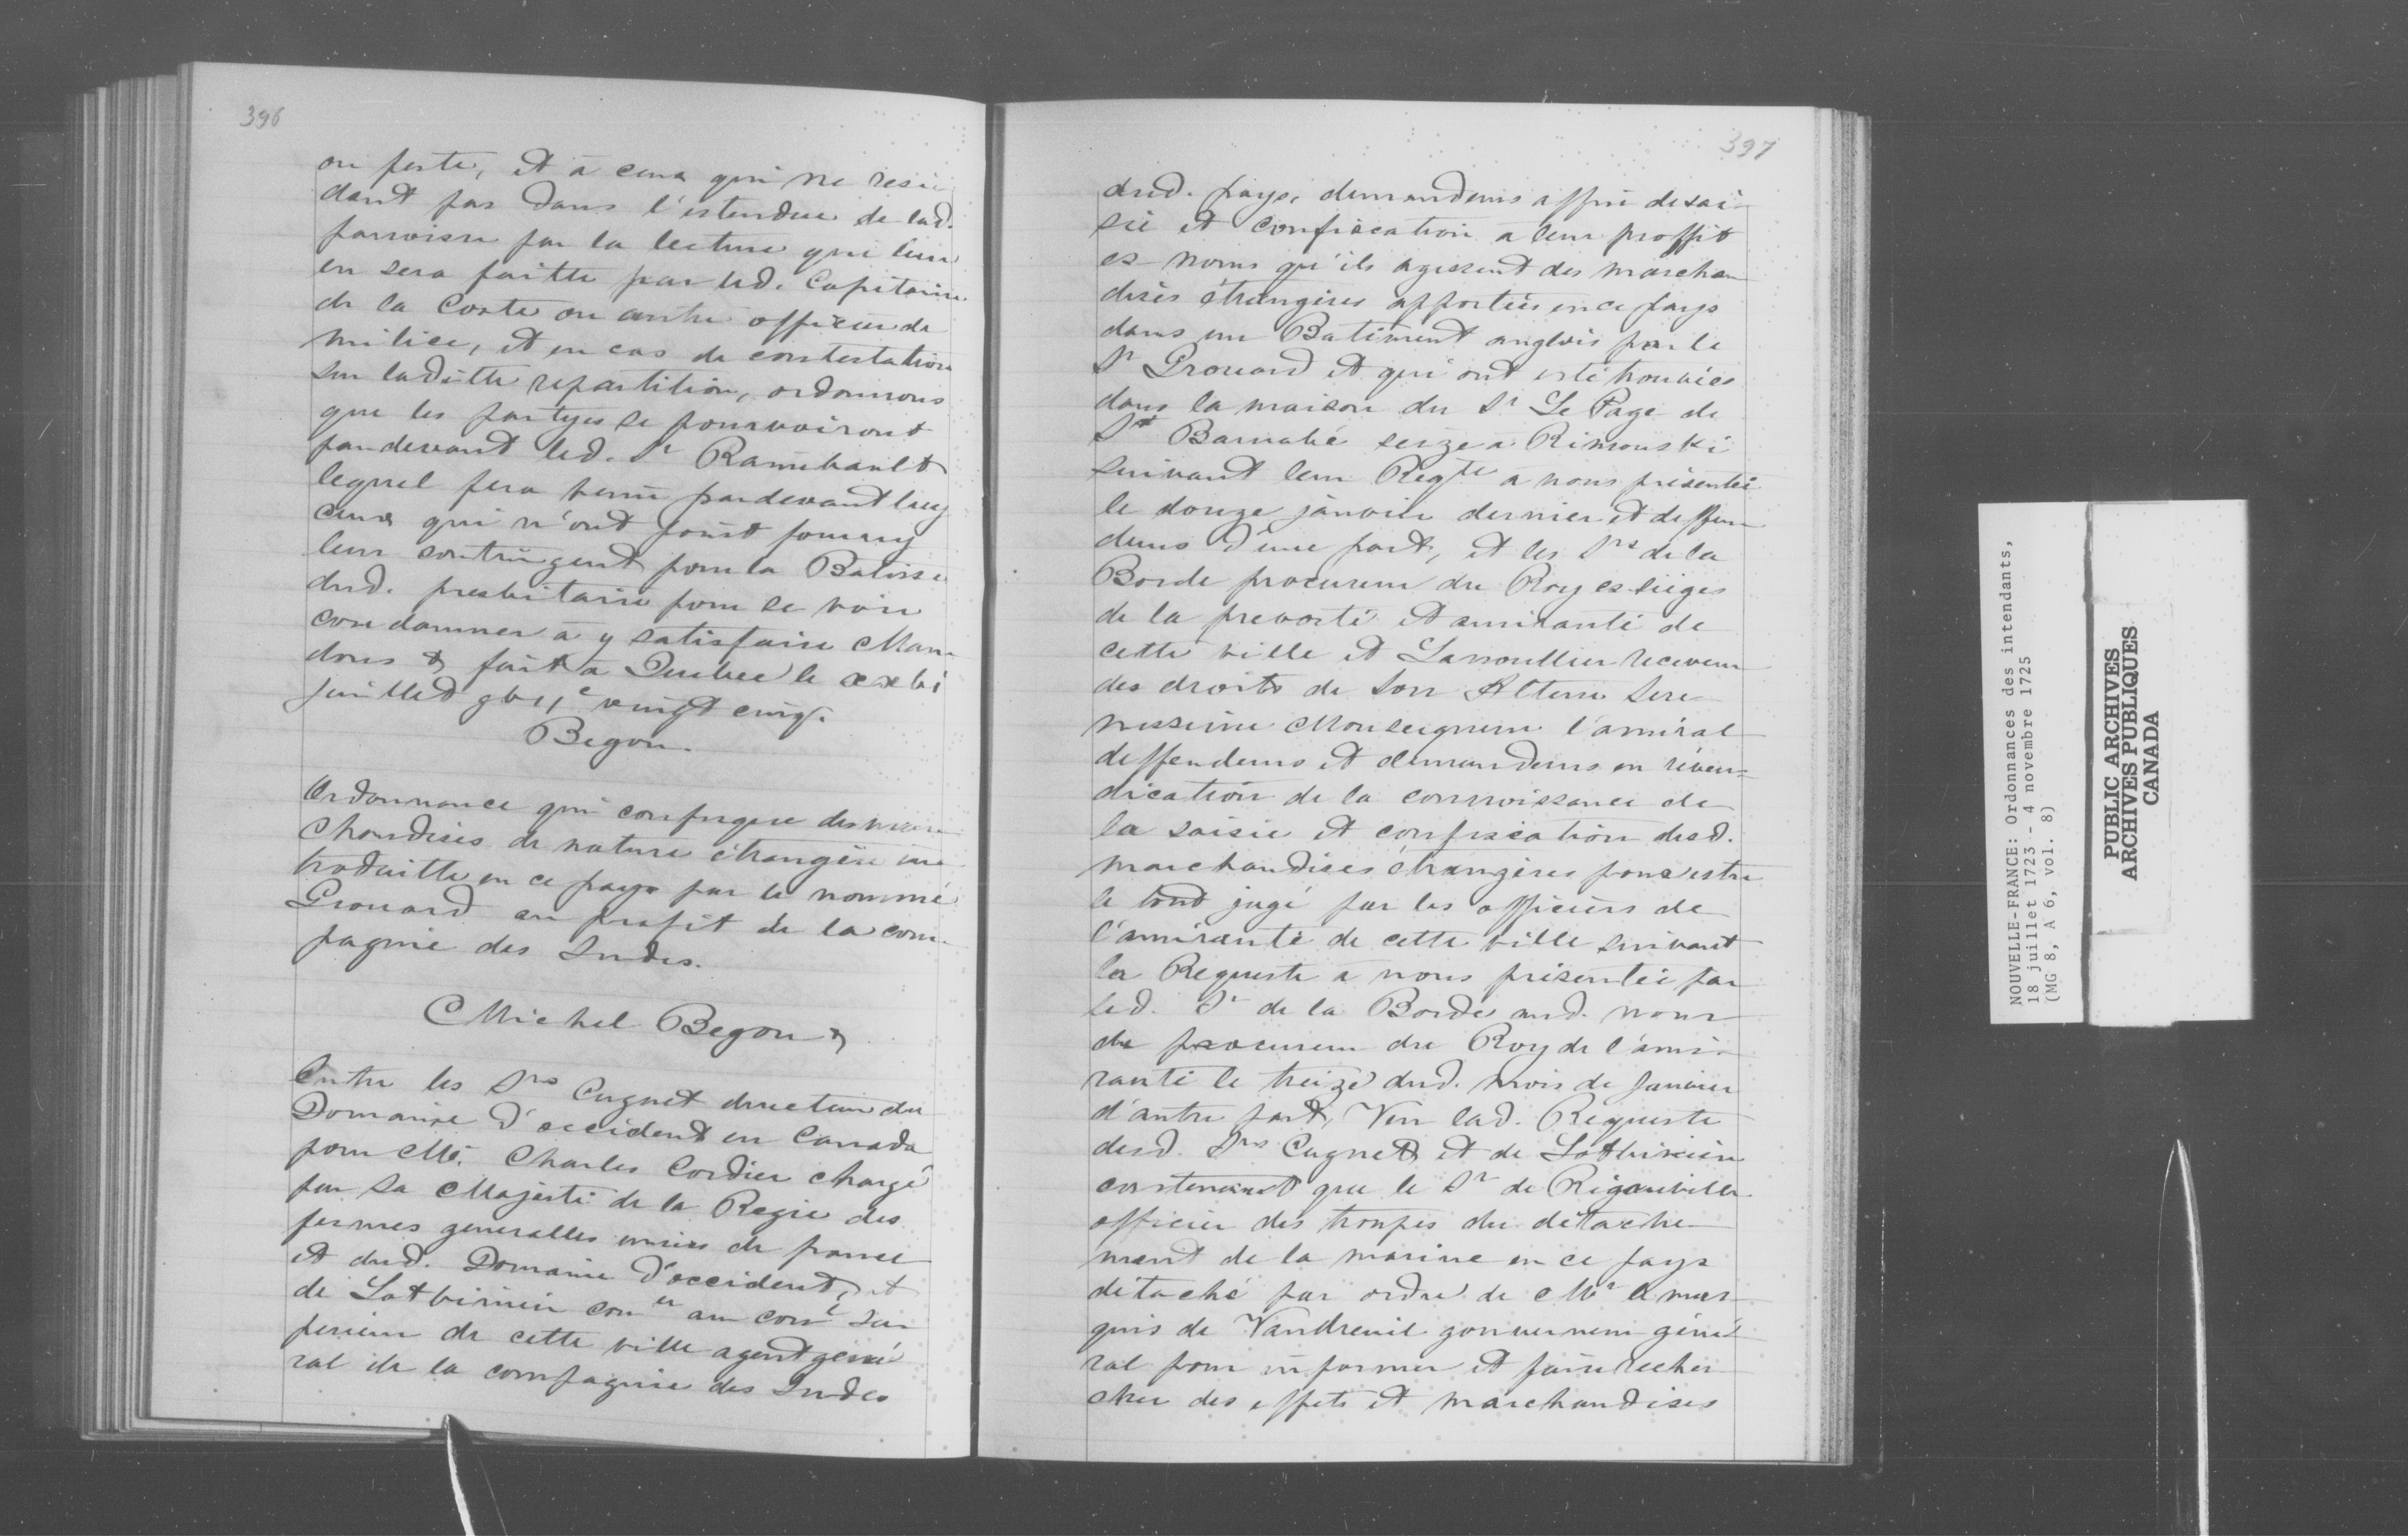 396
ou feste, et à ceux qui ne resi-
dent pas dans l'estendue de lad.
parroisse par la lecture qui leur
en sera faitte par led. Capitaine
de la Coste ou autre officier de
milice, et en cas de contestation
sur laditte repartition, ordonnons
que les partyes se pourvoiront
pardevant led. Sr Raimbault
lequel fera venir pardevant luy
ceux qui n'ont point fourny
leur contingent pour la Batisse
dud. presbitaire pour se voir
condamner à y satisfaire Man-
dons & fait à Quebec le xxvi
juillet gbij,c vingt cinq.
Begon.
Ordonnance qui confisque des mar-
chandises de nature étrangère in-
troduitte en ce pays par le nommé
Prouard au profit de la com-
pagnie des Indes.
Michel Begon &
Entre les Srs Cugnet directeur du
Domaine d'occident en Canada
pour Me. Charles Cordier chargé
par Sa Majesté de la Regie des
fermes generalles unies de france
et dud. Domaine d'occident, et
de Lotbinière coner au conl Su-
perieur de cette ville agent géné-
ral de la compagnie des Indes
397
dud. pays, demandeurs affin de sai-
sie et confiscation a leur proffit
es noms qu'ils agissent des marchan
dises étrangères apportées en ce pays
dans un Batiment anglois par le
Sr Prouard et qui ont esté trouvées
dans la maison du Sr Le Page de
St Barnabé seize à Rimouski
suivant leur Reqte a nous présentée
le douze janvier dernier et deffen-
deurs d'une part, et les Srs de la
Borde procureur du Roy es sièges
de la prevosté et amirauté de
cette ville et Lanoullier receveur
des droits de Son Altesse Sere-
nissime Monseigneur l'amiral
deffendeurs et demandeurs en réven-
dication de la connoissance de
la saisie et confiscation desd.
marchandises étrangères pour estre
le tout jugé par les officiers de
l'amirauté de cette ville suivant
la Requeste a nous présentée par
led. Sr de la Borde aud. nom
de procureur du Roy de l'ami-
rauté le treize dud. mois de Janvier
d'autre part, Veu lad. Requeste
desd. Srs Cugnet et de Lotbinière
contenant que le Sr de Rigauville
officier des troupes du détache-
ment de la marine en ce pays
détaché par ordre de Mr le mar-
quis de Vaudreuil gouverneur géné-
ral pour informer et faire recher-
cher des effets et marchandises
NOUVELLE-FRANCE: Ordonnances des intendants,
18 juillet 1723 - 4 novembre 1725
(MG 8, A 6, vol. 8)
PUBLIC ARCHIVES
ARCHIVES PUBLIQUES
CANADA